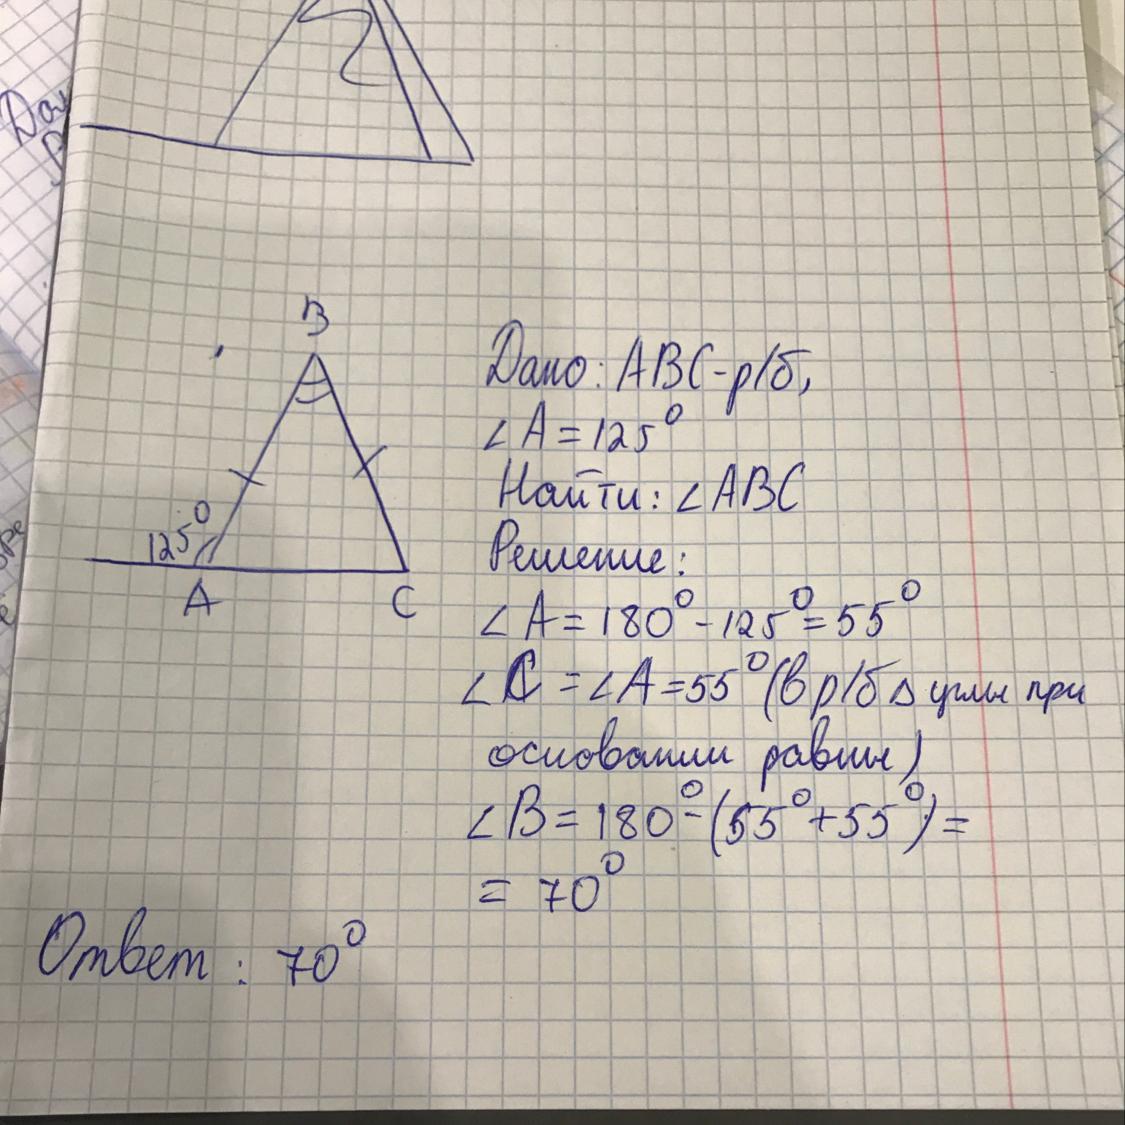 B
125°
A
C
Дано: ABC-р/б,
∠A=125°
Найти: ∠ABC
Решение:
∠A=180°-125°=55°
∠C=∠A=55° (в р/б ∆ углы при
основании равны)
∠B=180°-(55°+55°)=
=70°
Ответ: 70°